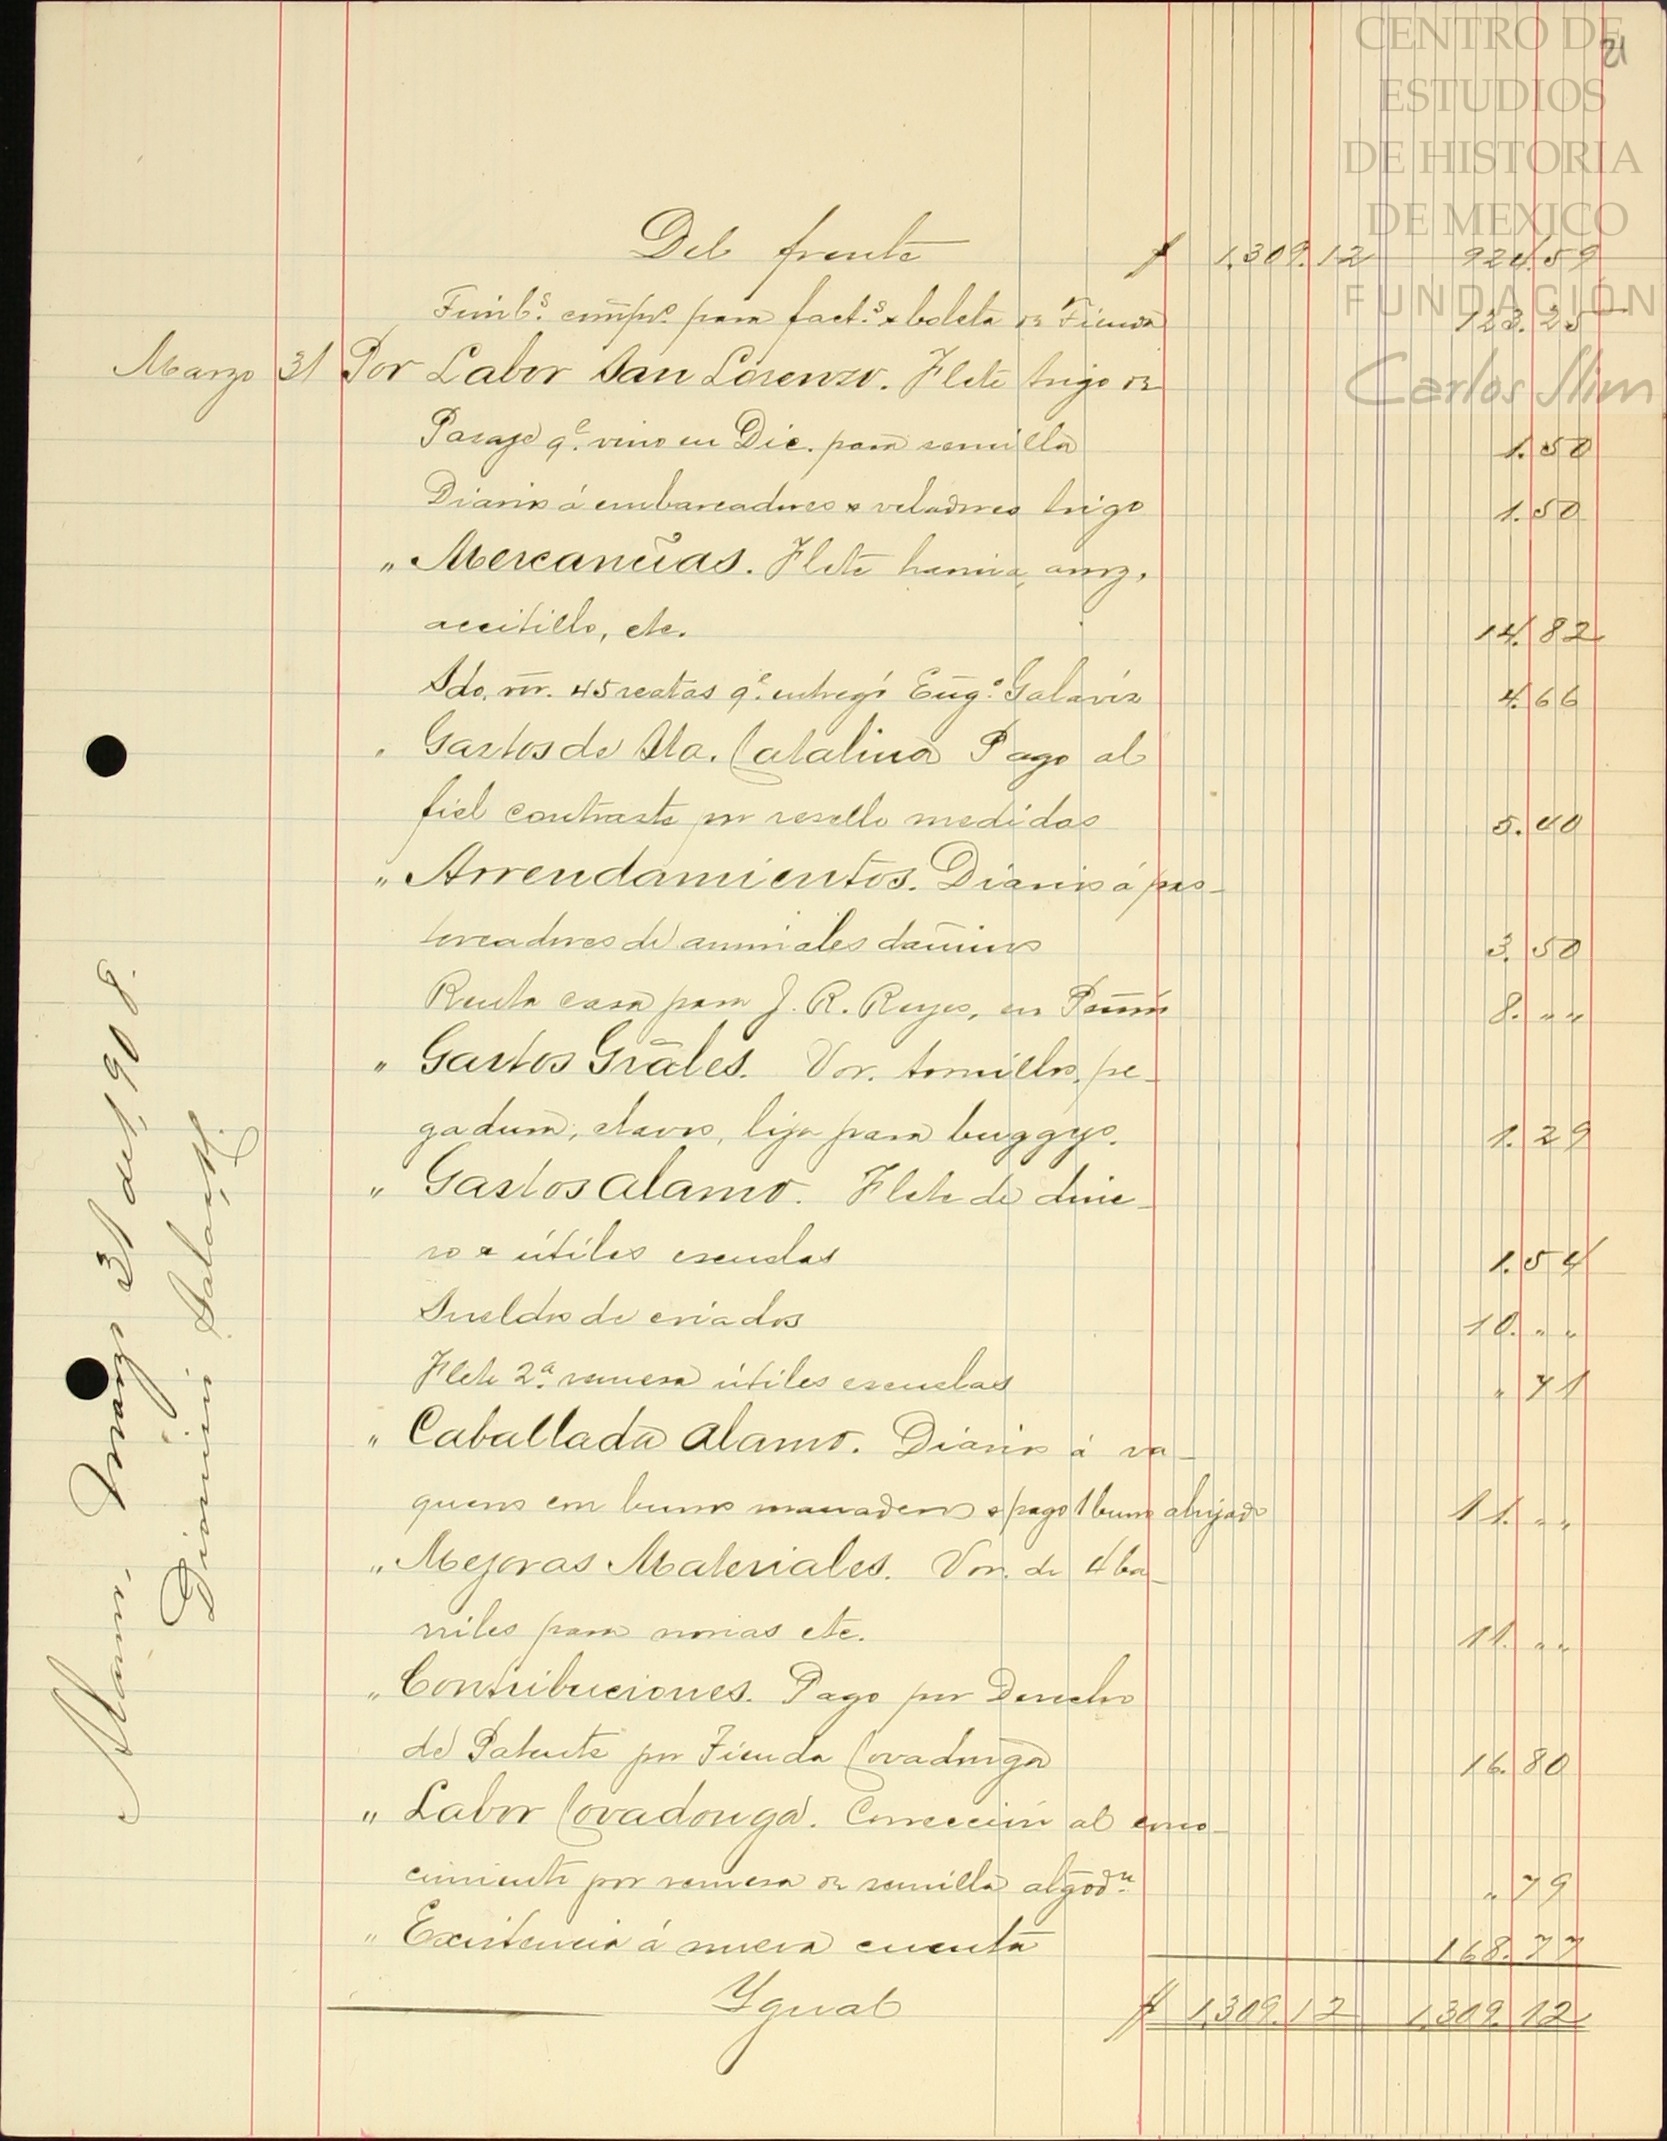 CENTRO DE
ESTUDIOS
DE HISTORIA
DE MEXICO
FUNDACIÓN
Carlos Slim
21
Del frente $ 1,309.12 924.59
Timb.s para fact.s x boleta Tienda 123.25
Marzo 31 Por Labor San Lorenzo. Flete trigo de
Pasaje q.e vino en Dic. para semilla 1.50
Diarios á embarcadores x veladores trigo 1.50
" Mercancias. Flete harina,
aceitillo, etc. 14.82
Sdo. 45 reatas q.e entregó Eug.o Galaviz 4.66
" Gastos de Sta. Catalina Pago al
fiel contraste por resello medidas 5.40
" Arrendamientos. Diarios á pas-
toreadores de animales dañinos 3.50
Renta casa para J. R. Reyes, en 8. " "
" Gastos Gräles. Vor. tornillos, pe-
gadura, clavos, lija para buggys. 1.29
" Gastos Alamo. Flete de dine-
ro x útiles escuelas 1.54
Sueldos de criados 10. " "
Flete 2.a remesa útiles escuelas " 71
" Caballada Alamo. Diarios á va-
queros con burros manaderos x pago 1 burro ahijado 11. " "
" Mejoras Materiales. Vor. de 4 ba-
rriles para norias etc. 11. " "
" Contribuciones. Pago por Derecho
de Patente por Tienda Covadonga 16.80
" Labor Covadonga. Corrección al cono-
cimiento por remesa de semilla algod.n " 79
" Existencia á nueva cuenta 168.77
Ygual $ 1,309.12 1,309.12
Alamo, Marzo 31 de 1,908.
Dionisio